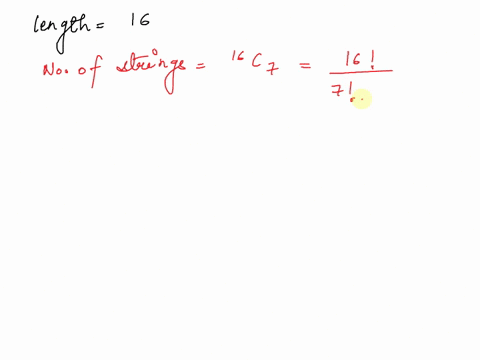 length = 16
No. of strings = ¹⁶C₇ = 16! / 7!